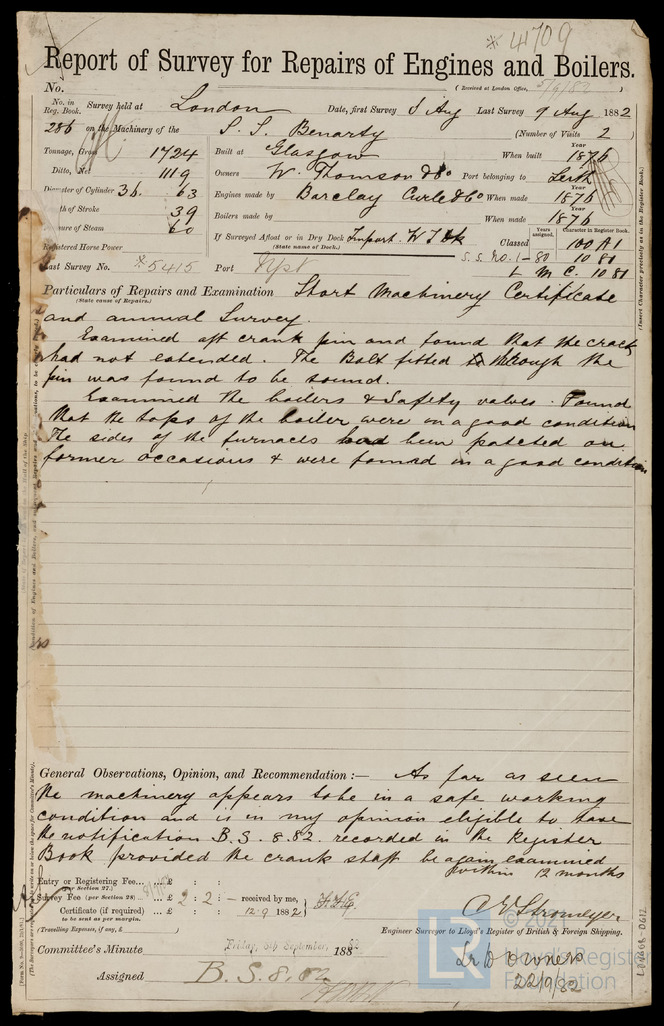 * 41709
Report of Survey for Repairs of Engines and Boilers.
No. (Received at London Office, 5/9/82)
No. in Reg. Book. Survey held at London Date, first Survey 8 Aug Last Survey 9 Aug 1882
286 on the Machinery of the S. S. Benarty (Number of Visits 2)
Tonnage, Gross 1724 Built at Glasgow When built Year 1876
Ditto, Net 1119 Owners W. Thomson & Co Port belonging to Leith
Diameter of Cylinder 36. 63 Engines made by Barclay Curle & Co When made Year 1876
Length of Stroke 39 Boilers made by When made Year 1876
Pressure of Steam 60 If Surveyed Afloat or in Dry Dock Import. W I Dk
(State name of Dock.)
Years assigned. Character in Register Book.
Classed 100 A1
Registered Horse Power S.S. No. 1 - 80 10 81
Last Survey No. *5415 Port L M C. 10 81
(Insert Character precisely as in the Register Book.)
Particulars of Repairs and Examination Start Machinery Certificate
(State cause of Repairs.)
and annual Survey.
Examined aft crank pin and found that the crack
had not extended. The Bolt fitted through the
pin was found to be sound.
Examined the boilers & Safety valves. Found
that the tops of the boiler were in a good condition
The sides of the furnaces had been patched on
former occasions & were found in a good condition
General Observations, Opinion, and Recommendation :— As far as seen
the machinery appears to be in a safe working
condition and is in my opinion eligible to have
the notification B.S. 8.82. recorded in the Register
Book provided the crank shaft be again examined
within 12 months
Entry or Registering Fee... ... £ : :
(per Section 27.)
Survey Fee (per Section 28) ... £ 2 : 2 : — received by me,
Certificate (if required) ... £ : : 12.9 1882
to be sent as per margin.
(Travelling Expenses, if any, £ )
C E Stromeyer
Engineer Surveyor to Lloyd's Register of British & Foreign Shipping.
Committee's Minute Friday, 8th September, 1882
Assigned B. S. 8, 82
Lr D Owners
22/9/82
© 2021
LR
Lloyd's Register
Foundation